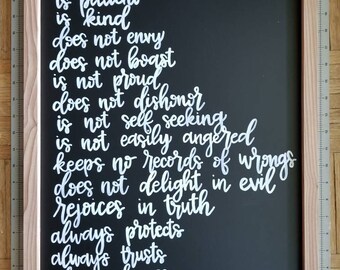 is patient
is kind
does not envy
does not boast
is not proud
does not dishonor
is not self seeking
is not easily angered
keeps no records of wrongs
does not delight in evil
rejoices in truth
always protects
always trusts